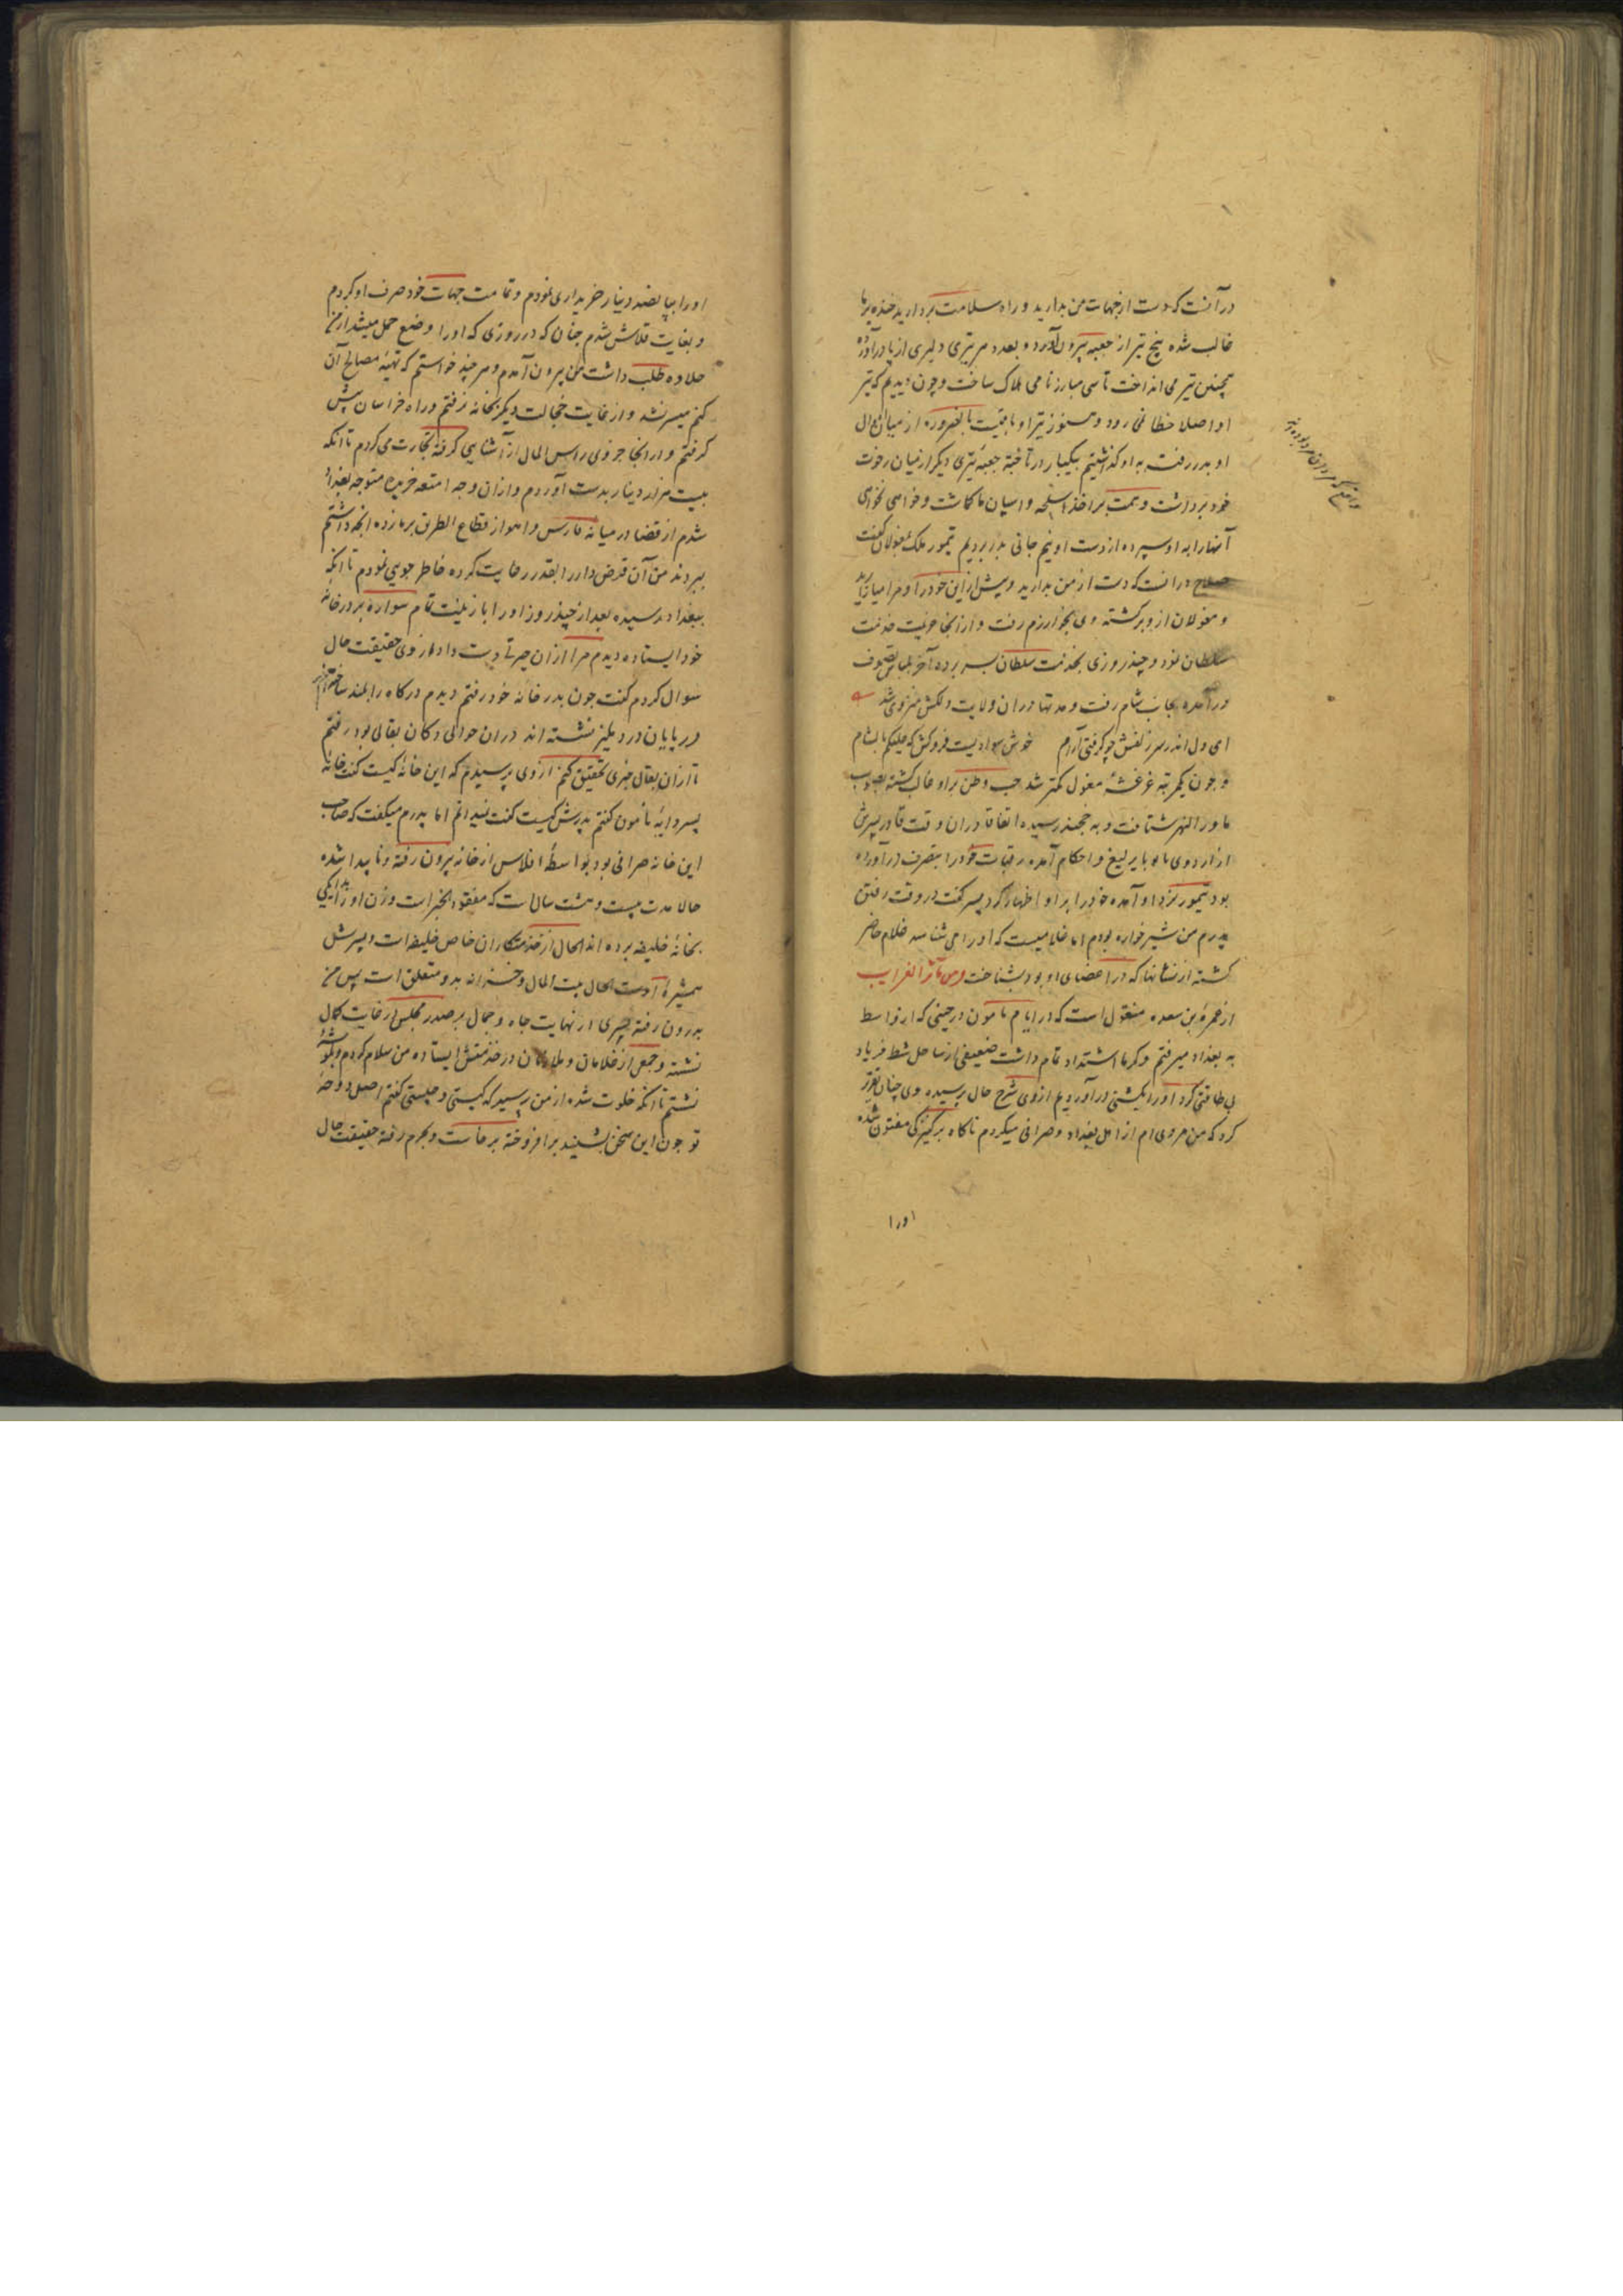 در آنست که دست از جهات من بدارید و راه سلامت بردارید خنده بر ما
غالب شده پنج تیر از جعبه بیرون آورد و بعدد هر تیری دلیری از پا درآورد
همچنین تیر می انداخت تا سی مبارز نامی هلاک ساخت و چون دیدیم که تیر
او اصلا خطا نمی رود و هنوز تیر او باقیست بالضروره از میان اموال
او بدر رفت به او گذاشتیم بیکبار در تاخته جعبه تیری دیگر از میان رخوت
خود برداشت و همت بر اخذ اسلحه و اسپان ما گماشت و خواهی نخواهی
آنها را به او سپرده از دست او نیم جانی بدر بردیم تیمور ملک بمغولان گفت
صلاح در آنست که دست از من بدارید و بیش ازین خود را و مرا میازارید
و مغولان ازو برگشته وی بخوارزم رفت و از آنجا عزیمت خدمت
سلطان نمود و چند روزی بخدمت سلطان بسر برده آخر بلباس تصوف
در آمده بجانب شام رفت و مدتها در آن ولایت دلکش منزوی شد
ای دل اندر سر زلفش چو گرفتی آرام خوش سوادیست فروکش که علیکم بالشام
و چون یکمرتبه غرغشهٔ مغول کمتر شد حب وطن بر او غالب گشته بصوب
ماورالنهر شتافت و به خجند رسیده اتفاقا در آن وقت قادر پسرش
از اردوی بابو با یرلیغ و احکام آمده رقبات خود را بتصرف در آورده
بود تیمور نزد او آمده خود را بر او اظهار کرد پسر گفت در وقت رفتن
پدرم من شیر خواره بودم اما غلامیست که او را می شناسد غلام حاضر
گشته از نشانها که در اعضای او بود بشناخت ومن مآثر الغرایب
از عمرة بن سعده منقول است که در ایام مامون در حینی که از واسط
به بغداد میرفتم و گرما اشتداد تمام داشت ضعیفی از ساحل شط فریاد
بی طاقتی کرد او را بکشتی در آوردیم از وی شرح حال پرسیده وی چنان تقریر
کرد که من مردی ام از اهل بغداد و صرافی میکردم ناگاه بر کنیزکی مفتون شده
اورا
او را بپانصد دینار خریداری نمودم و تمامت جهات خود صرف او کردم
و بغایت قلاش شدم چنان که در روزی که او را وضع حمل میشد از من
حلاوه طلب داشت من بیرون آمدم و هر چند خواستم که تهیه مصالح آن
کنم میسر نشد و از غایت خجالت دیگر بخانه نرفتم و راه خراسان پیش
گرفتم و در آنجا جزوی راس المال از آشنایی گرفته تجارت می کردم تا آنکه
بیست هزار دینار بدست آوردم و از آن وجه امتعه خریده متوجه بغداد
شدم از قضا در میانه فارس و اهواز قطاع الطریق بر ما زده آنچه داشتم
ببردند من آن قرض دار را بقدر رعایت کرده خاطر جویی نمودم تا آنکه
ببغداد رسیده بعد از چند روز او را با زینت تمام سواره بر در خانه
خود ایستاده دیدم مرا از آن حیرتی دست داد از وی حقیقت حال
سوال کردم گفت چون بدر خانه خود رفتم دیدم درگاه را بلند ساخته اند
و دربانان در دهلیز نشسته اند در آن حوالی دکان بقالی بود رفتم
تا از آن بقال خبری تحقیق کنم از وی پرسیدم که این خانه کیست گفت خانه
پسر دایهٔ مامون گفتم پدرش کیست گفت نمیدانم اما پدرم میگفت که صاحب
این خانه صرافی بود بواسطهٔ افلاس از خانه بیرون رفته و ناپیدا شده
حالا مدت بیست و هشت سال است که مفقود الخبر است و زن او را بدایگی
بخانهٔ خلیفه برده اند الحال از خدمتکاران خاص خلیفه است و پسرش
همشیرهٔ اوست الحال بیت المال و خزانه بدو متعلق است پس من
بدرون رفته پسری در نهایت جاه و جمال بر صدر مجلس در غایت کمال
نشسته و جمعی از غلامان و ملازمان در خدمتش ایستاده من سلام کردم و بگوشه
نشستم تا آنکه خلوت شده از من پرسید که کیستی و چیستی گفتم اصل دوحهٔ
تو چون این سخن بشنید برافروخته برخاست و بحرم رفته حقیقت حال